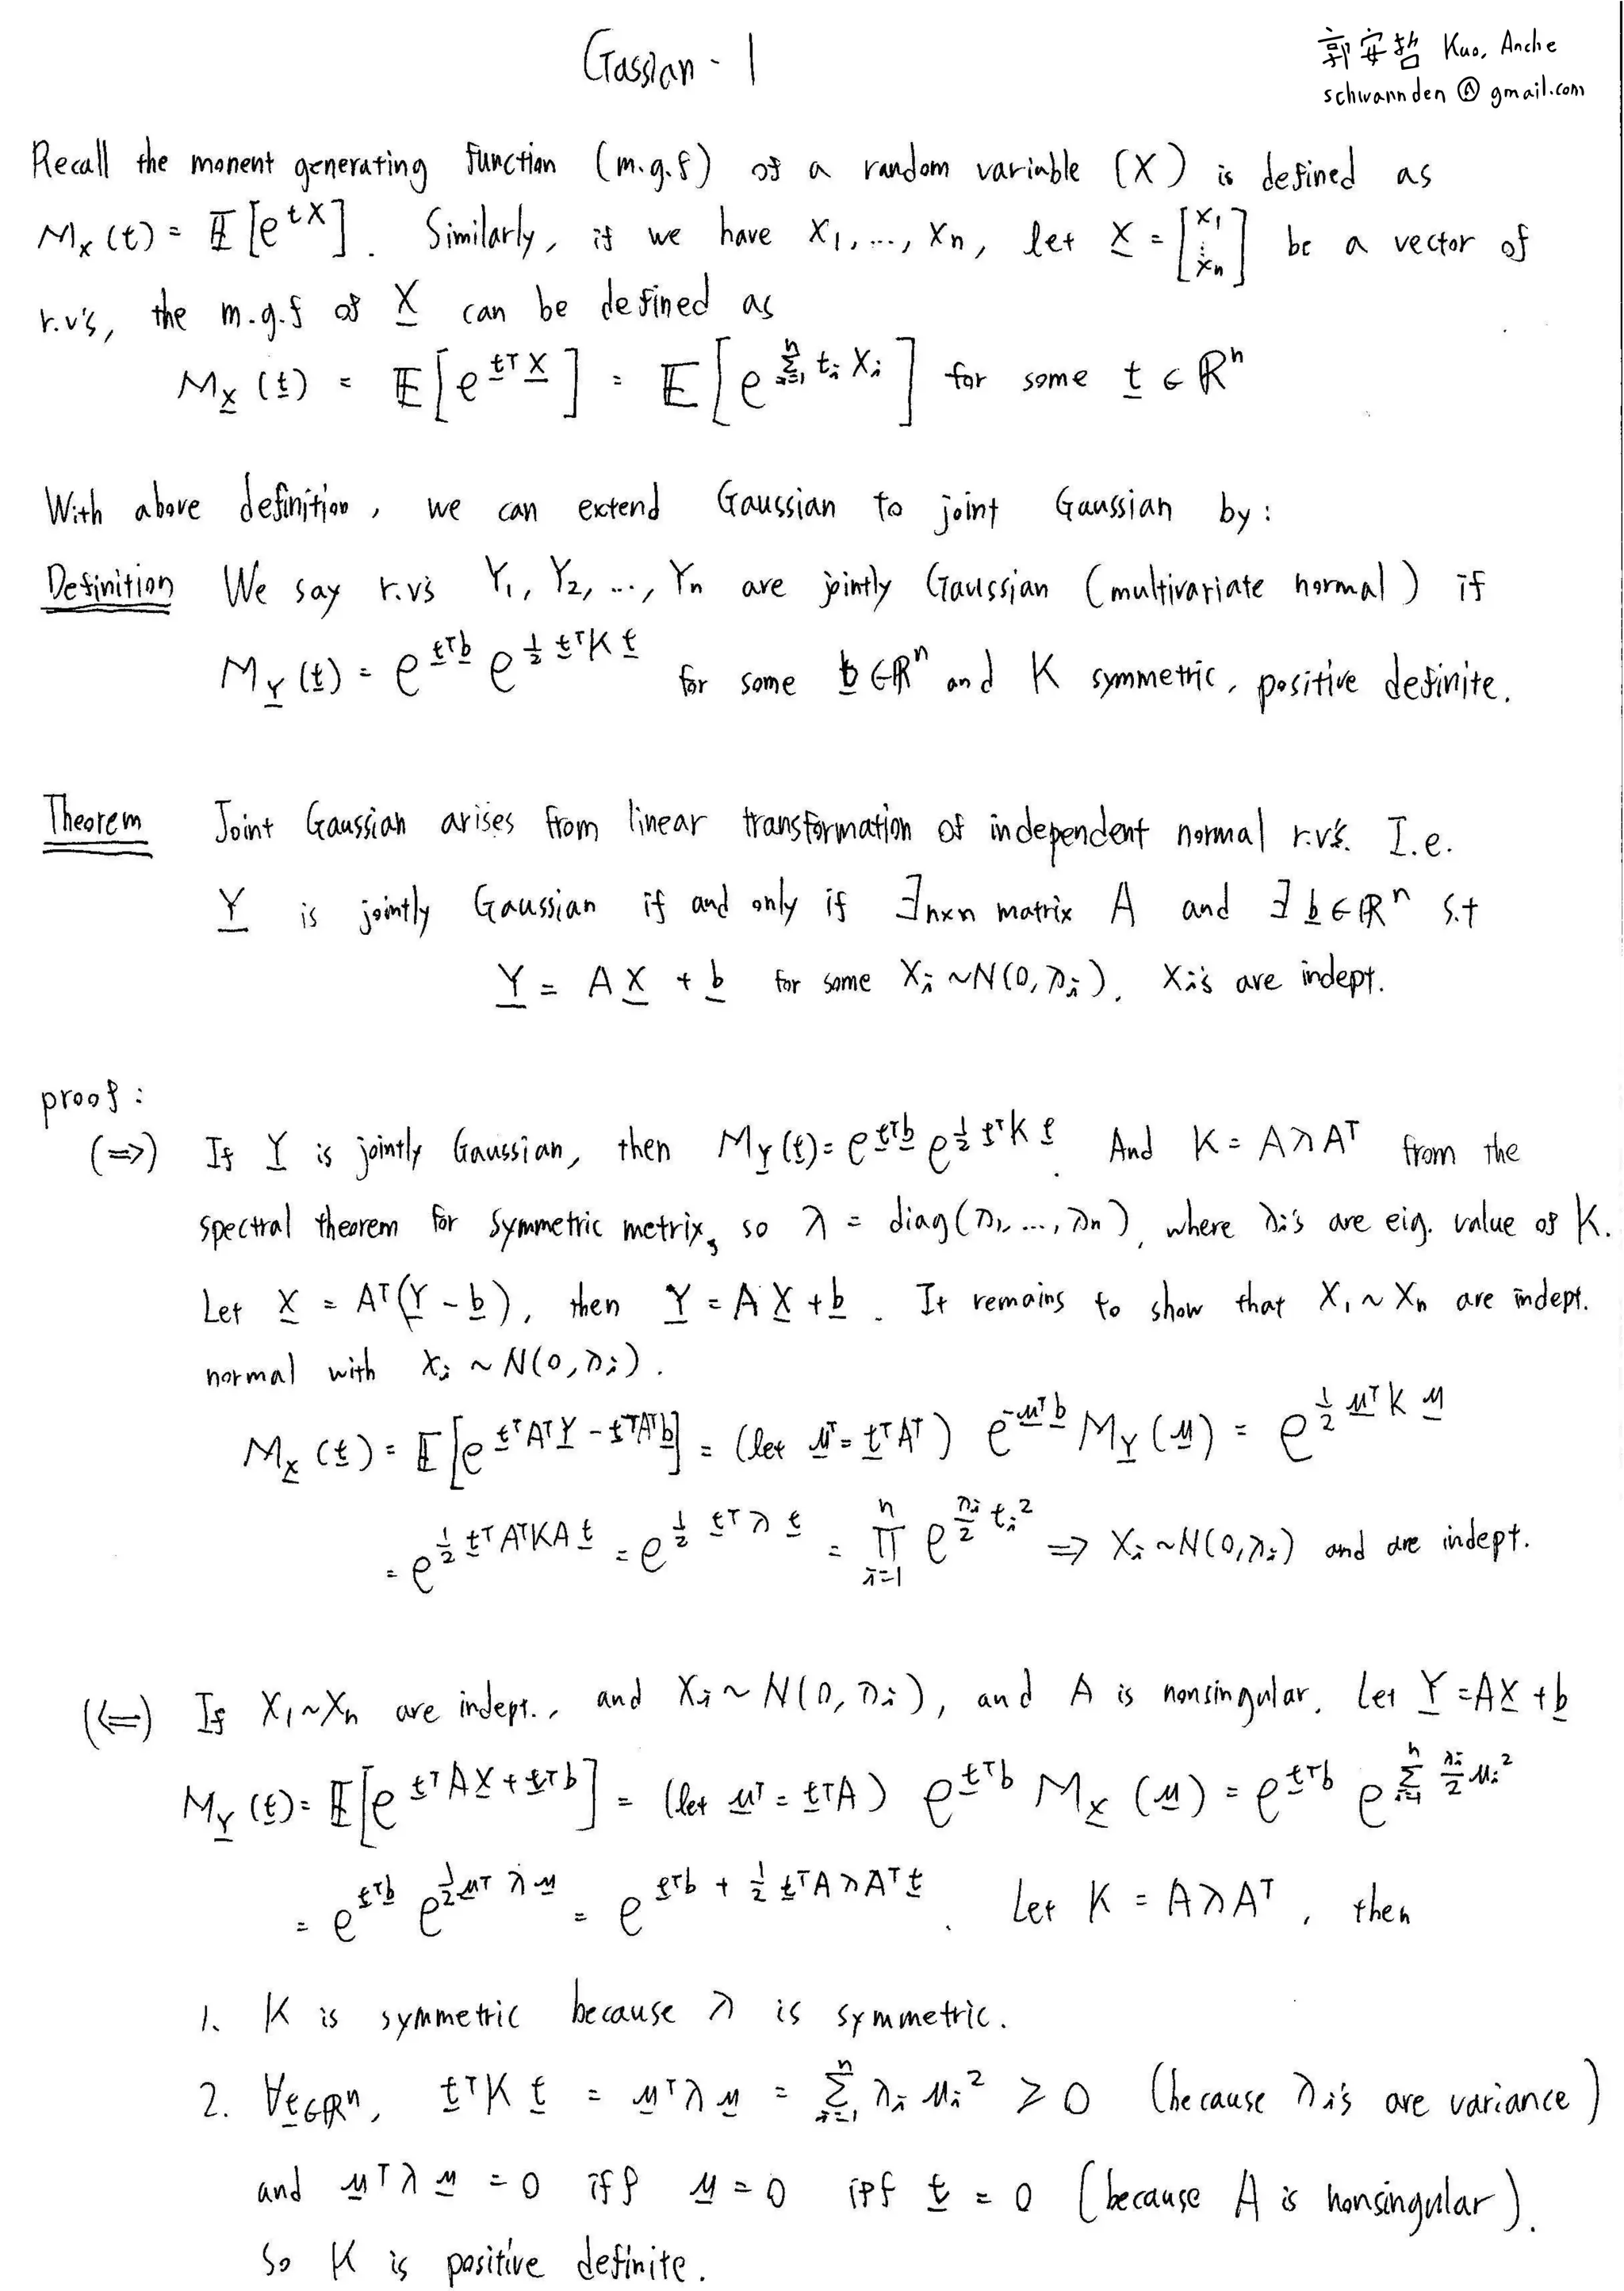 Gassian - 1
郭安哲 Kuo, Anche
schwannden @ gmail.com
Recall the monent generating function (m.g.f) of a random variable (X) is defined as
M_X(t) = 𝔼[e^{tX}]. Similarly, if we have X_1, ..., X_n, let X = [X_1 ⋮ X_n] be a vector of
r.v's, the m.g.f of X can be defined as
M_X(t) = 𝔼[e^{t^T X}] = 𝔼[e^{∑_{i=1}^n t_i X_i}] for some t ∈ ℝ^n
With above definition, we can extend Gaussian to joint Gaussian by:
Definition We say r.v's Y_1, Y_2, ..., Y_n are jointly Gaussian (multivariate normal) if
M_Y(t) = e^{t^T b} e^{½ t^T K t} for some b ∈ ℝ^n and K symmetric, positive definite.
Theorem Joint Gaussian arises from linear transformation of independent normal r.v's. I.e.
Y is jointly Gaussian if and only if ∃ n×n matrix A and ∃ b ∈ ℝ^n s.t
Y = AX + b for some X_i ~ N(0, λ_i). X_i's are indept.
proof:
(⇒) If Y is jointly Gaussian, then M_Y(t) = e^{t^T b} e^{½ t^T K t}. And K = AλA^T from the
spectral theorem for symmetric metrix, so λ = diag(λ_1, ..., λ_n), where λ_i's are eig. value of K.
Let X = A^T(Y - b), then Y = AX + b. It remains to show that X_1 ~ X_n are indept.
normal with X_i ~ N(0, λ_i).
M_X(t) = 𝔼[e^{t^T A^T Y - t^T A^T b}] = (let μ^T = t^T A^T) e^{-μ^T b} M_Y(μ) = e^{½ μ^T K μ}
= e^{½ t^T A^T K A t} = e^{½ t^T λ t} = ∏_{i=1}^n e^{λ_i/2 t_i^2} ⇒ X_i ~ N(0, λ_i) and are indept.
(⇐) If X_1 ~ X_n are indept., and X_i ~ N(0, λ_i), and A is nonsingular. Let Y = AX + b
M_Y(t) = 𝔼[e^{t^T A X + t^T b}] = (let μ^T = t^T A) e^{t^T b} M_X(μ) = e^{t^T b} e^{∑_{i=1}^n λ_i/2 μ_i^2}
= e^{t^T b} e^{½ μ^T λ μ} = e^{t^T b + ½ t^T A λ A^T t}. Let K = AλA^T, then
1. K is symmetric because λ is symmetric.
2. ∀t∈ℝ^n, t^T K t = μ^T λ μ = ∑_{i=1}^n λ_i μ_i^2 ≥ 0 (because λ_i's are variance)
and μ^T λ μ = 0 iff μ = 0 iff t = 0 (because A is nonsingular).
So K is positive definite.